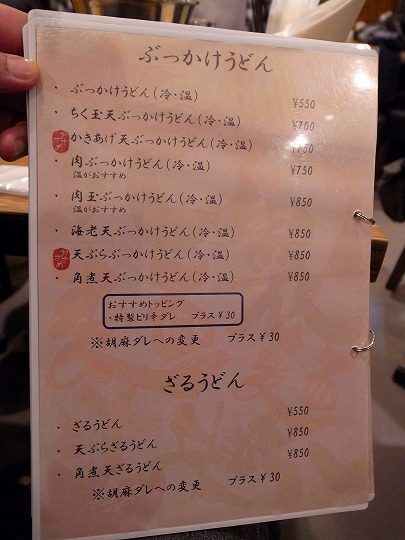 ぶっかけうどん
・ ぶっかけうどん(冷・温) ¥550
・ ちく玉天ぶっかけうどん(冷・温) ¥700
おすすめ かきあげ天ぶっかけうどん(冷・温) ¥750
・ 肉ぶっかけうどん(冷・温) ¥750
温がおすすめ
・ 肉玉ぶっかけうどん(冷・温) ¥850
温がおすすめ
・ 海老天ぶっかけうどん(冷・温) ¥850
おすすめ 天ぷらぶっかけうどん(冷・温) ¥850
・ 角煮天ぶっかけうどん(冷・温) ¥850
おすすめトッピング
・特製ピリ辛ダレ プラス¥30
※胡麻ダレへの変更 プラス¥30
ざるうどん
・ ざるうどん ¥550
・ 天ぷらざるうどん ¥850
・ 角煮天ざるうどん ¥850
※胡麻ダレへの変更 プラス¥30